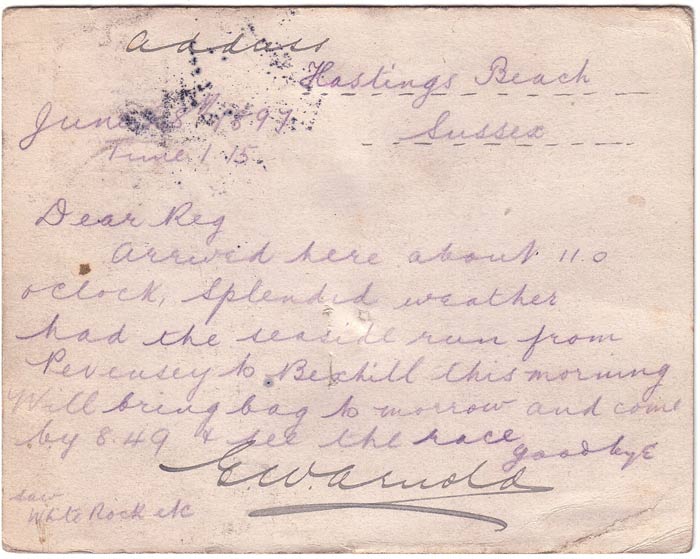 address
Hastings Beach
June 8th 1897
Sussex
Time 1 15
Dear Reg
Arrived here about 11.0
oclock, Splendid weather
had the seaside run from
Pevensey to Bexhill this morning
Will bring bag to morrow and come
by 8.49 & see the race
goodbye
EWArnold
saw
White Rock etc